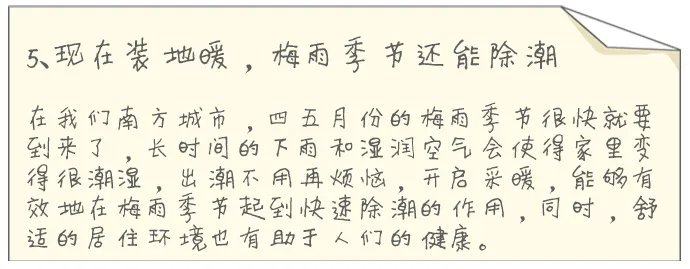 5、现在装地暖，梅雨季节还能除潮
在我们南方城市，四五月份的梅雨季节很快就要
到来了，长时间的下雨和湿润空气会使得家里变
得很潮湿，出潮不用再烦恼，开启采暖，能够有
效地在梅雨季节起到快速除潮的作用，同时，舒
适的居住环境也有助于人们的健康。